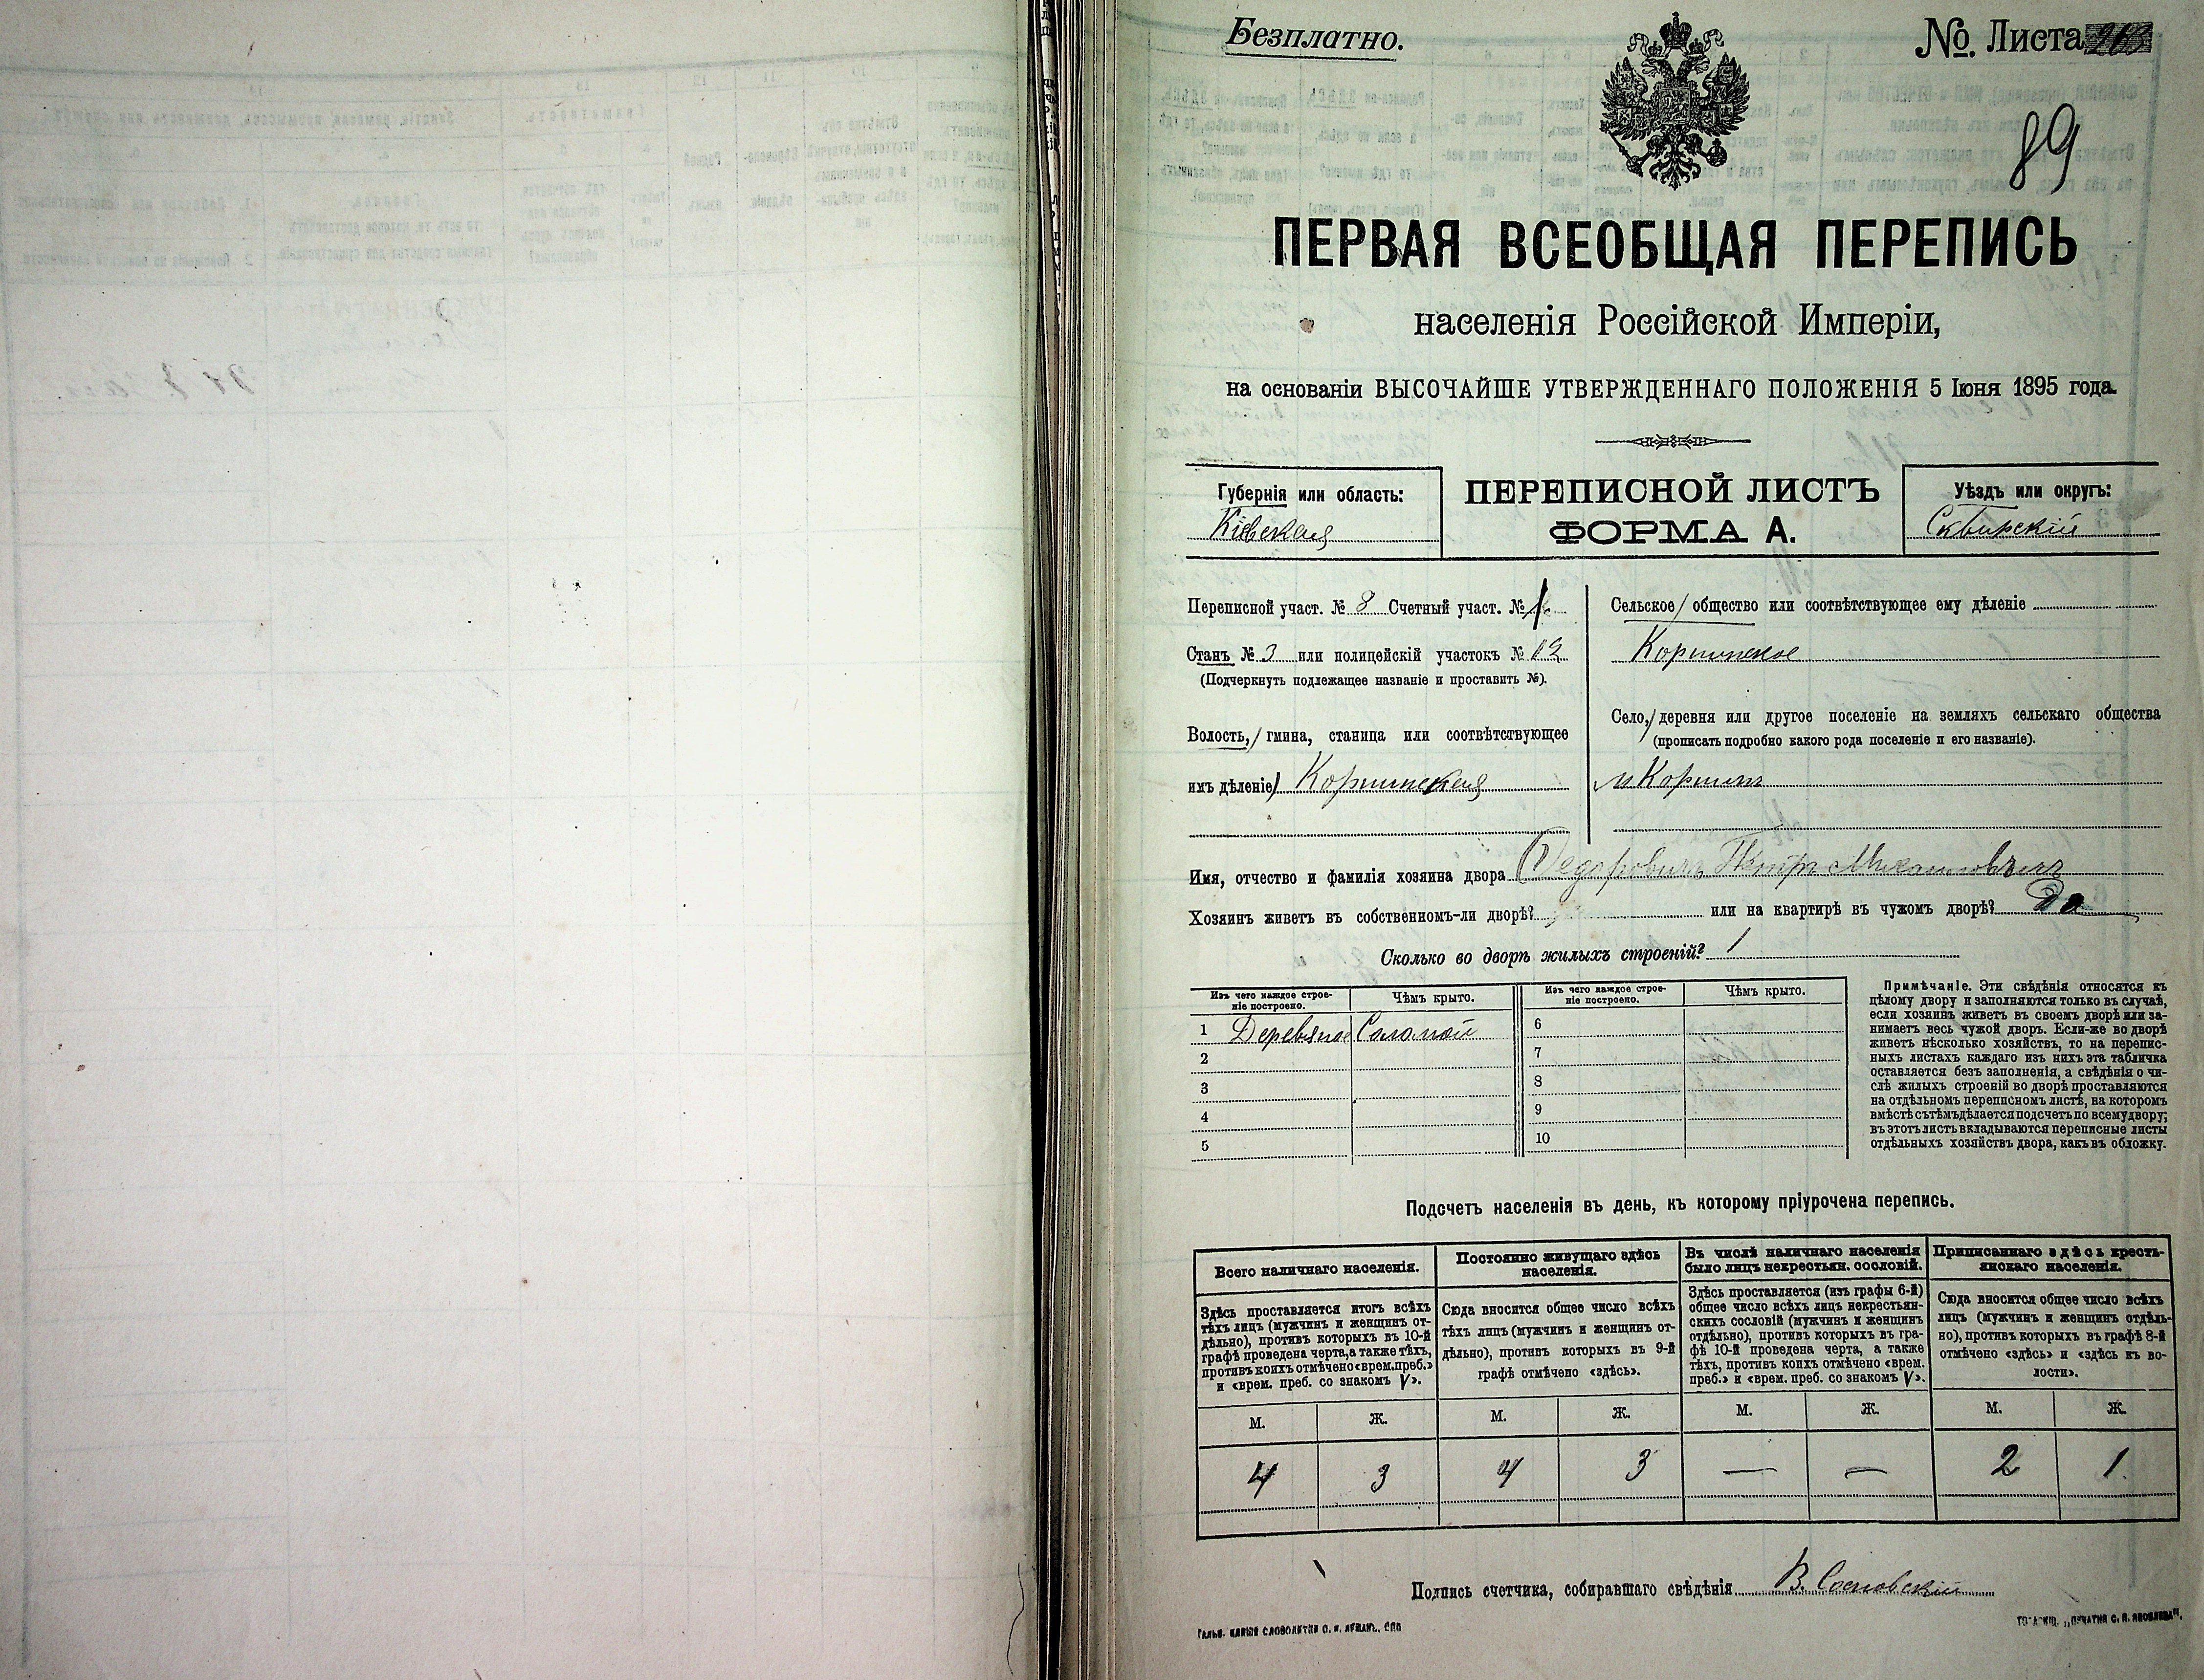 Безплатно.
№. Листа
89
ПЕРВАЯ ВСЕОБЩАЯ ПЕРЕПИСЬ
населенія Россійской Имперіи,
на основаніи ВЫСОЧАЙШЕ УТВЕРЖДЕННАГО ПОЛОЖЕНІЯ 5 Іюня 1895 года.
Губернія или область:
Кіевская
ПЕРЕПИСНОЙ ЛИСТЪ
ФОРМА А.
Уѣздъ или округъ:
Сквирскій
Переписной участ. № 8 Счетный участ. №
Станъ № 3 или полицейскій участокъ № 12
(Подчеркнуть подлежащее названіе и проставить №).
Волость, гмина, станица или соотвѣтствующее
имъ дѣленіе) Корнинская
Сельское общество или соотвѣтствующее ему дѣленіе
Корнинское
Село, деревня или другое поселеніе на земляхъ сельскаго общества
(прописать подробно какого рода поселеніе и его названіе).
м Корнинъ
Имя, отчество и фамилія хозяина двора Федоровичъ Петръ Михаиловичъ
Хозяинъ живетъ въ собственномъ-ли дворѣ? или на квартирѣ въ чужомъ дворѣ? Да
Сколько во дворѣ жилыхъ строеній? 1
Изъ чего каждое строе-
ніе построено.
Чѣмъ крыто.
Изъ чего каждое строе-
ніе построено.
Чѣмъ крыто.
1 Деревяное Соломой 6
2 7
3 8
4 9
5 10
Примѣчаніе. Эти свѣдѣнія относятся къ
цѣлому двору и заполняются только въ случаѣ,
если хозяинъ живетъ въ своемъ дворѣ или за-
нимаетъ весь чужой дворъ. Если-же во дворѣ
живетъ нѣсколько хозяйствъ, то на перепис-
ныхъ листахъ каждаго изъ нихъ эта табличка
оставляется безъ заполненія, а свѣдѣнія о чи-
слѣ жилыхъ строеній во дворѣ проставляются
на отдѣльномъ переписномъ листѣ, на которомъ
вмѣстѣ съ тѣмъ дѣлается подсчетъ по всему двору;
въ этотъ листъ вкладываются переписные листы
отдѣльныхъ хозяйствъ двора, какъ въ обложку.
Подсчетъ населенія въ день, къ которому пріурочена перепись.
Всего наличнаго населенія.
Здѣсь проставляется итогъ всѣхъ
тѣхъ лицъ (мужчинъ и женщинъ от-
дѣльно), противъ которыхъ въ 10-й
графѣ проведена черта, а также тѣхъ,
противъ коихъ отмѣчено «врем. преб.»
и «врем. преб. со знакомъ V».
Постоянно живущаго здѣсь
населенія.
Сюда вносится общее число всѣхъ
тѣхъ лицъ (мужчинъ и женщинъ от-
дѣльно), противъ которыхъ въ 9-й
графѣ отмѣчено «здѣсь».
Въ числѣ наличнаго населенія
было лицъ некрестьян. сословій.
Здѣсь проставляется (изъ графы 6-й)
общее число всѣхъ лицъ некрестьян-
скихъ сословій (мужчинъ и женщинъ
отдѣльно), противъ которыхъ въ гра-
фѣ 10-й проведена черта, а также
тѣхъ, противъ коихъ отмѣчено «врем.
преб.» и «врем. преб. со знакомъ V».
Приписаннаго здѣсь кресть-
янскаго населенія.
Сюда вносится общее число всѣхъ
лицъ (мужчинъ и женщинъ отдѣль-
но), противъ которыхъ въ графѣ 8-й
отмѣчено «здѣсь» и «здѣсь къ во-
лости».
М. Ж. М. Ж. М. Ж. М. Ж.
4 3 4 3 — — 2 1
Подпись счетчика, собиравшаго свѣдѣнія В. Сосновскій